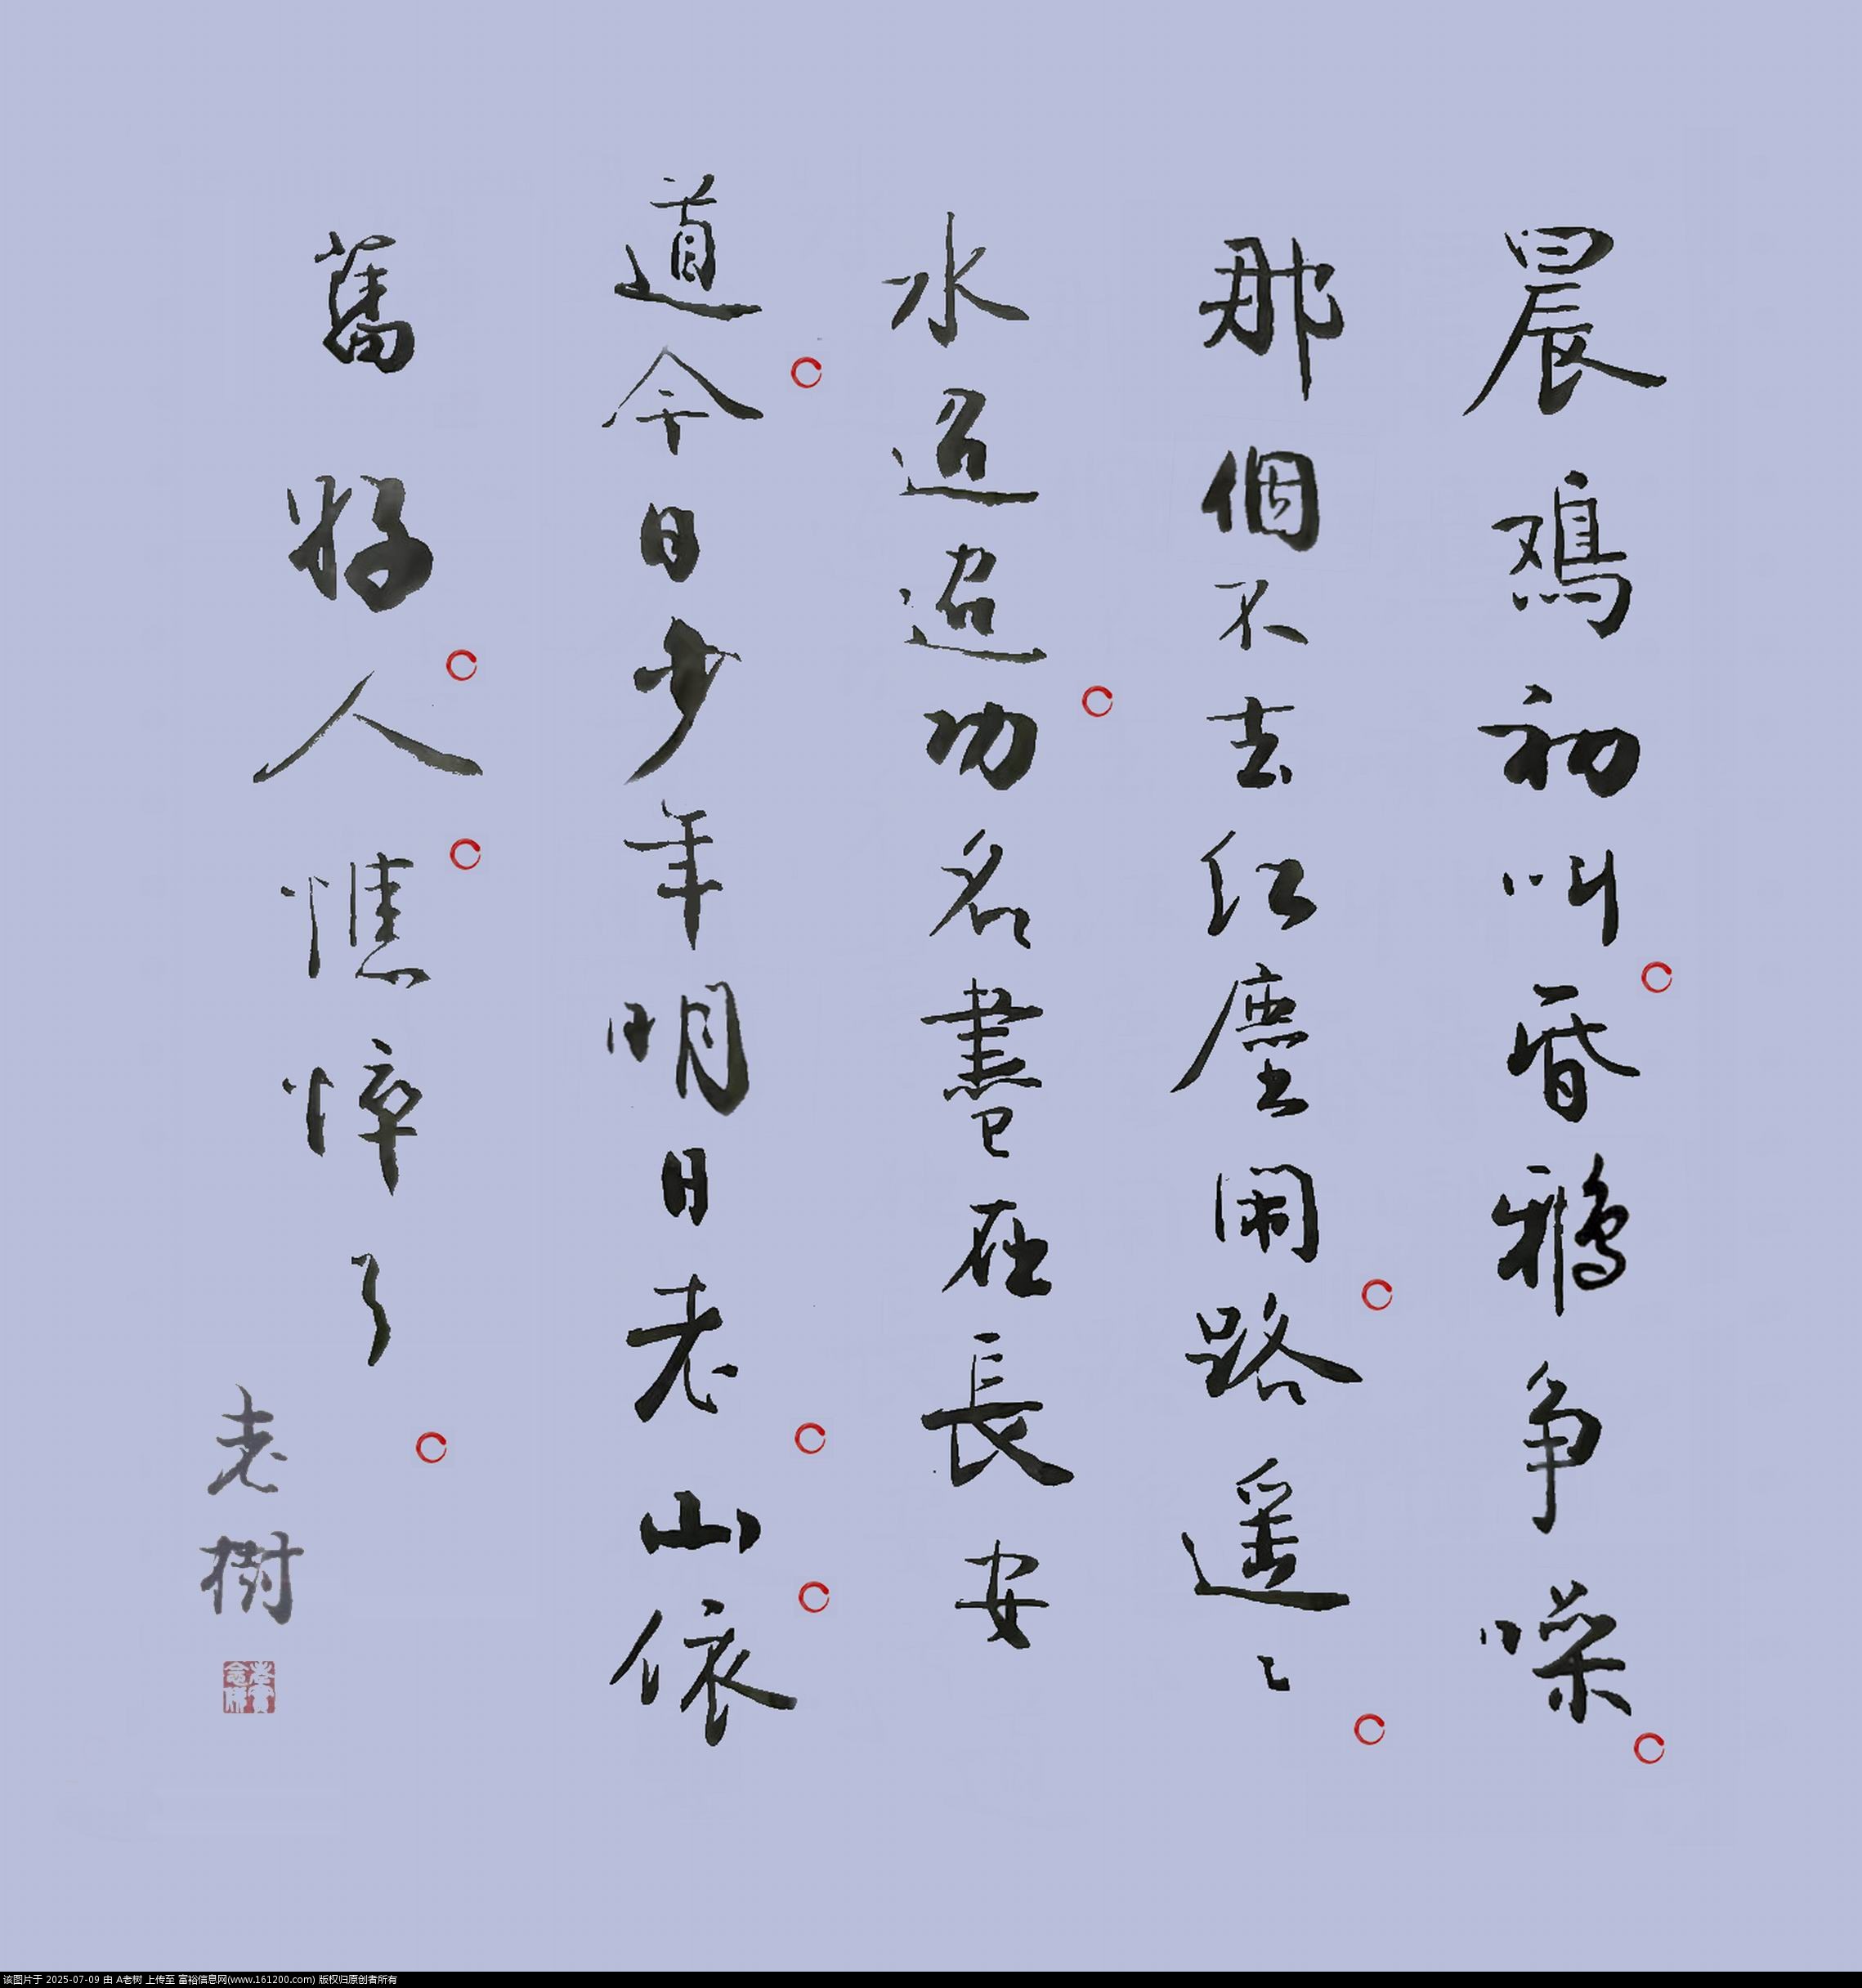 晨鳮初叫昏鴉争噪
那個不去红塵闹路遥〻
水迢迢功名盡在長安
道今日少年明日老山依
舊好人憔悴了
老樹
老實念佛
该图片于 2025-07-09 由 A老树 上传至 富裕信息网(www.161200.com) 版权归原创者所有